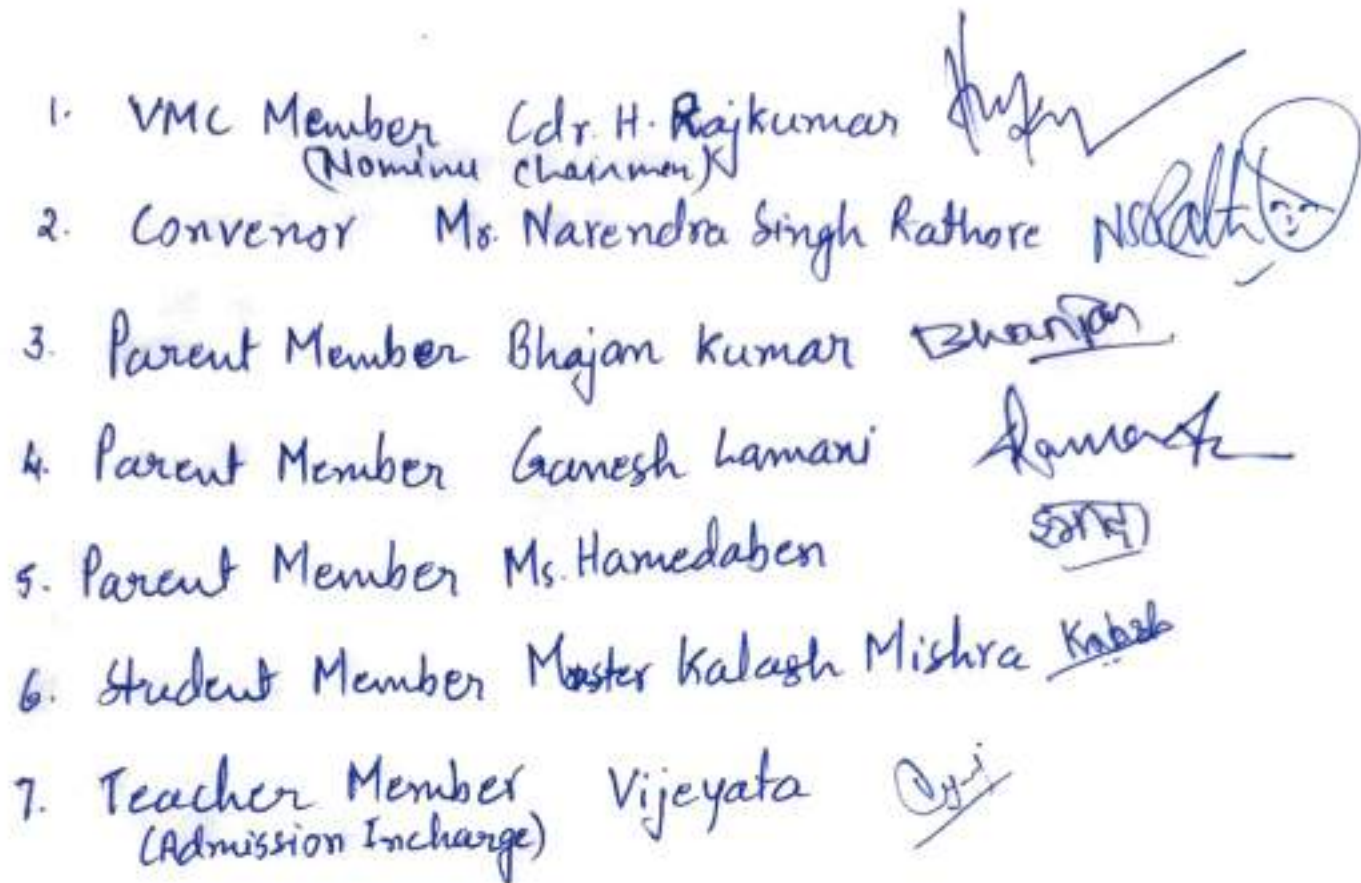 1. VMC Member Cdr. H. Rajkumar
(Nominee Chairman)
2. Convenor Mr. Narendra Singh Rathore NSRath
3. Parent Member Bhajan Kumar
4. Parent Member Ganesh Lamani
5. Parent Member Ms. Hamedaben
6. Student Member Master Kalash Mishra Kalash
7. Teacher Member Vijeyata
(Admission Incharge)